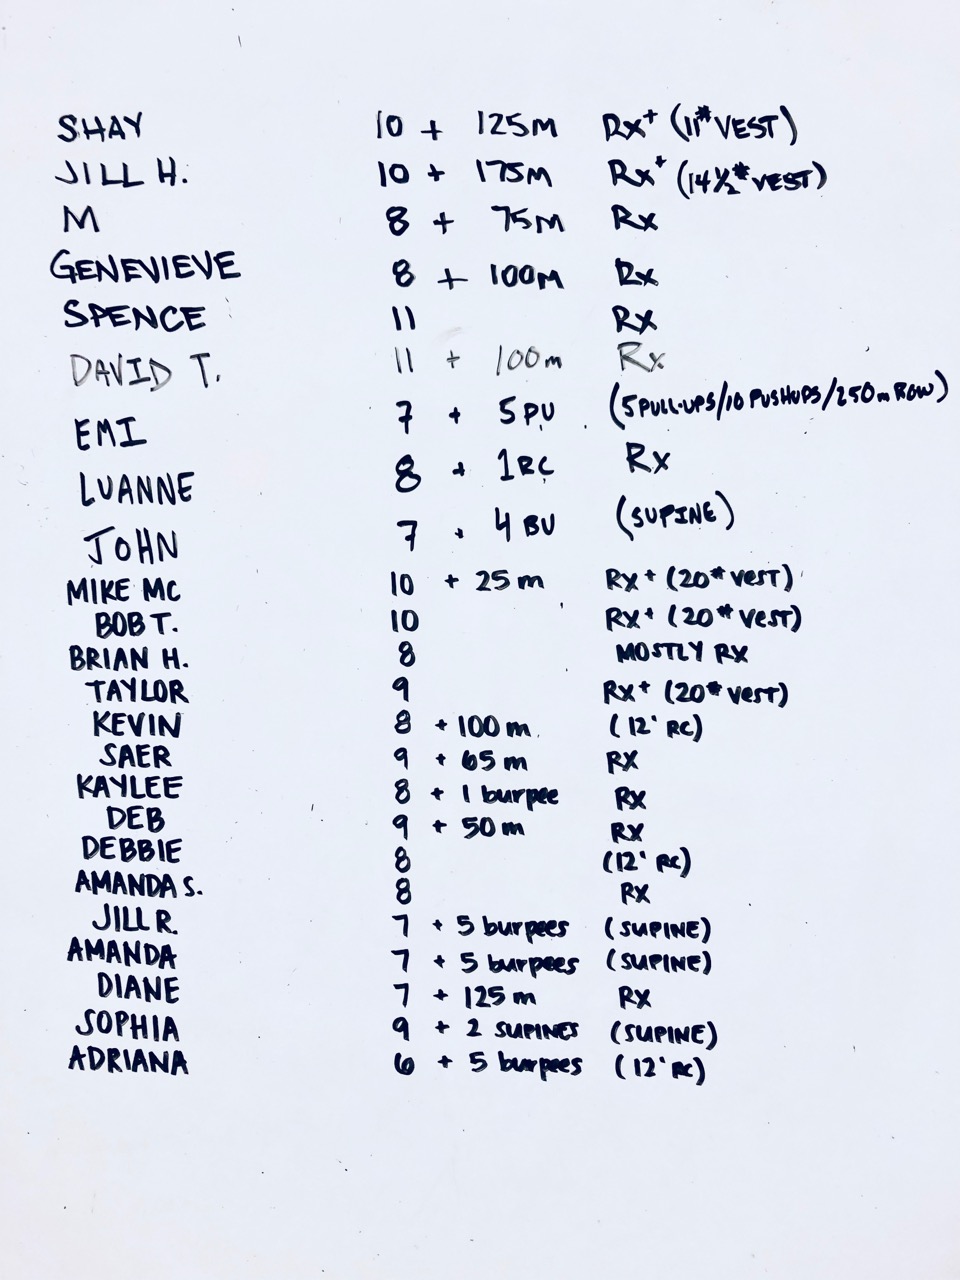 SHAY 10 + 125M Rx+ (11# VEST)
JILL H. 10 + 175M Rx+ (14½# VEST)
M 8 + 75M Rx
GENEVIEVE 8 + 100M Rx
SPENCE 11 Rx
DAVID T. 11 + 100m Rx
EMI 7 + 5 PU (5 PULL-UPS/10 PUSHUPS/250m ROW)
LUANNE 8 + 1 RC Rx
JOHN 7 + 4 BU (SUPINE)
MIKE MC 10 + 25 m Rx+ (20# VEST)
BOB T. 10 Rx+ (20# VEST)
BRIAN H. 8 MOSTLY RX
TAYLOR 9 Rx+ (20# VEST)
KEVIN 8 + 100 m (12' RC)
SAER 9 + 65 m RX
KAYLEE 8 + 1 burpee RX
DEB 9 + 50 m RX
DEBBIE 8 (12' RC)
AMANDA S. 8 RX
JILL R. 7 + 5 burpees (SUPINE)
AMANDA 7 + 5 burpees (SUPINE)
DIANE 7 + 125 m RX
SOPHIA 9 + 2 SUPINES (SUPINE)
ADRIANA 6 + 5 burpees (12' RC)